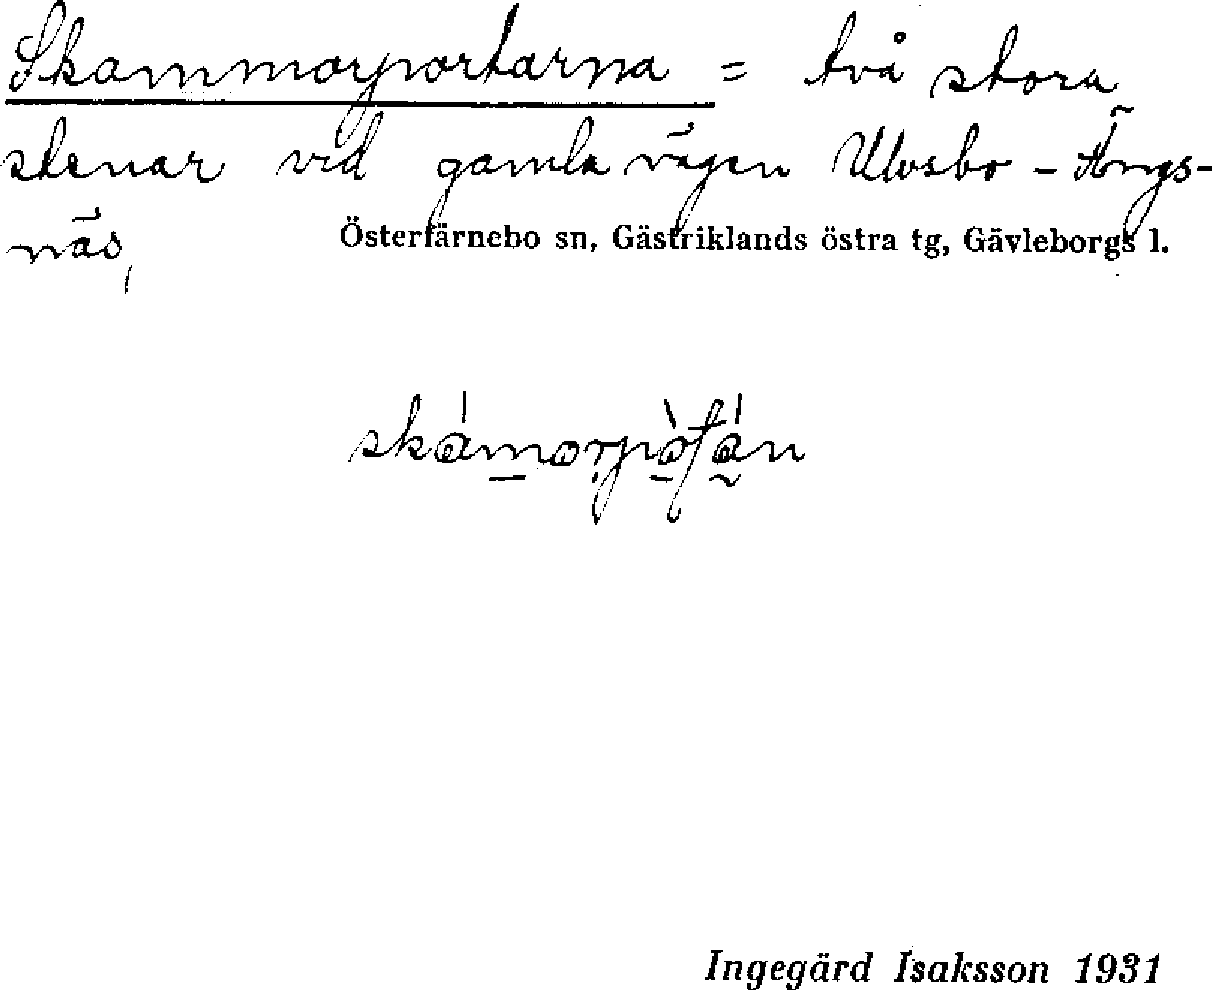 Skammorportarna = två stora
stenar vid gamla vägen Ulvsbo - Ängs-
näs,
Österfärnebo sn, Gästriklands östra tg, Gävleborgs l.
Ingegärd Isaksson 1931